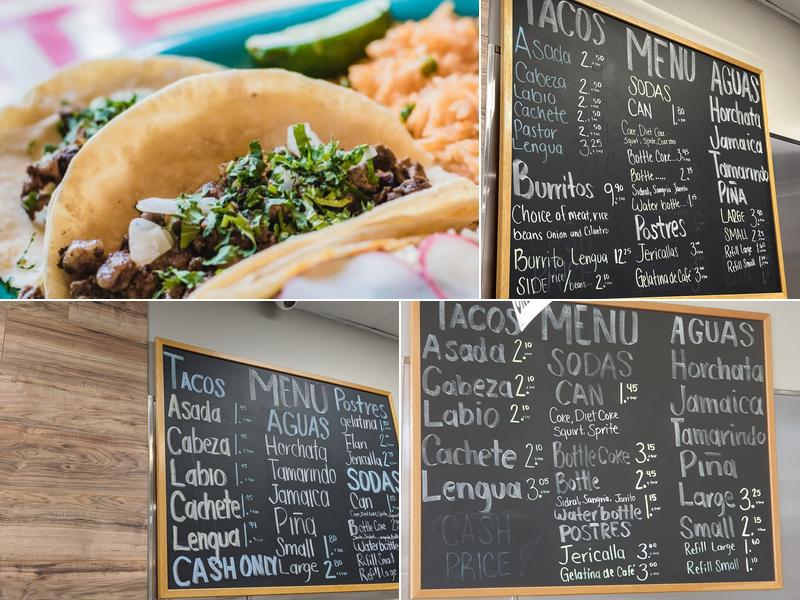 TACOS
Asada 2.50
Cabeza 2.50
Labio 2.50
Cachete 2.50
Pastor 2.50
Lengua 3.25
Burritos 9.90
Choice of meat, rice
beans Onion and Cilantro
Burrito Lengua 12.25
SIDE rice/beans 2.10
MENU
SODAS
CAN 1.80
Coke, Diet Coke
Squirt, Sprite,
Bottle Coke... 3.45
Bottle..... 2.75
Sidral, Sangria, Jarrito
Water bottle.. 1.
Postres
Jericallas 3.
Gelatina de Café 3.
AGUAS
Horchata
Jamaica
Tamarindo
PIÑA
LARGE 3.
SMALL 2.
Refill Large
Refill Small
TACOS
Asada 1.
Cabeza 1.
Labio 1.
Cachete 1.
Lengua 1.99
CASH ONLY
MENU
AGUAS
Horchata
Tamarindo
Jamaica
Piña
Small 1.80
Large 2.80
Postres
gelatina 1.
Flan 2.
Jericalla 2.
SODAS
Can 1.
Bottle Coke
Bottle
Water bottle
Refill Large
TACOS
Asada 2.10
Cabeza 2.10
Labio 2.10
Cachete 2.10
Lengua 3.05
CASH
PRICE!
MENU
SODAS
CAN 1.45
Coke, Diet Coke
Squirt, Sprite
Bottle Coke 3.15
Bottle 2.45
Sidral, Sangria, Jarrito
Water bottle 1.15
POSTRES
Jericalla 3.00
Gelatina de Café 3.00
AGUAS
Horchata
Jamaica
Tamarindo
Piña
Large 3.25
Small 2.15
Refill Large 1.60
Refill Small 1.10